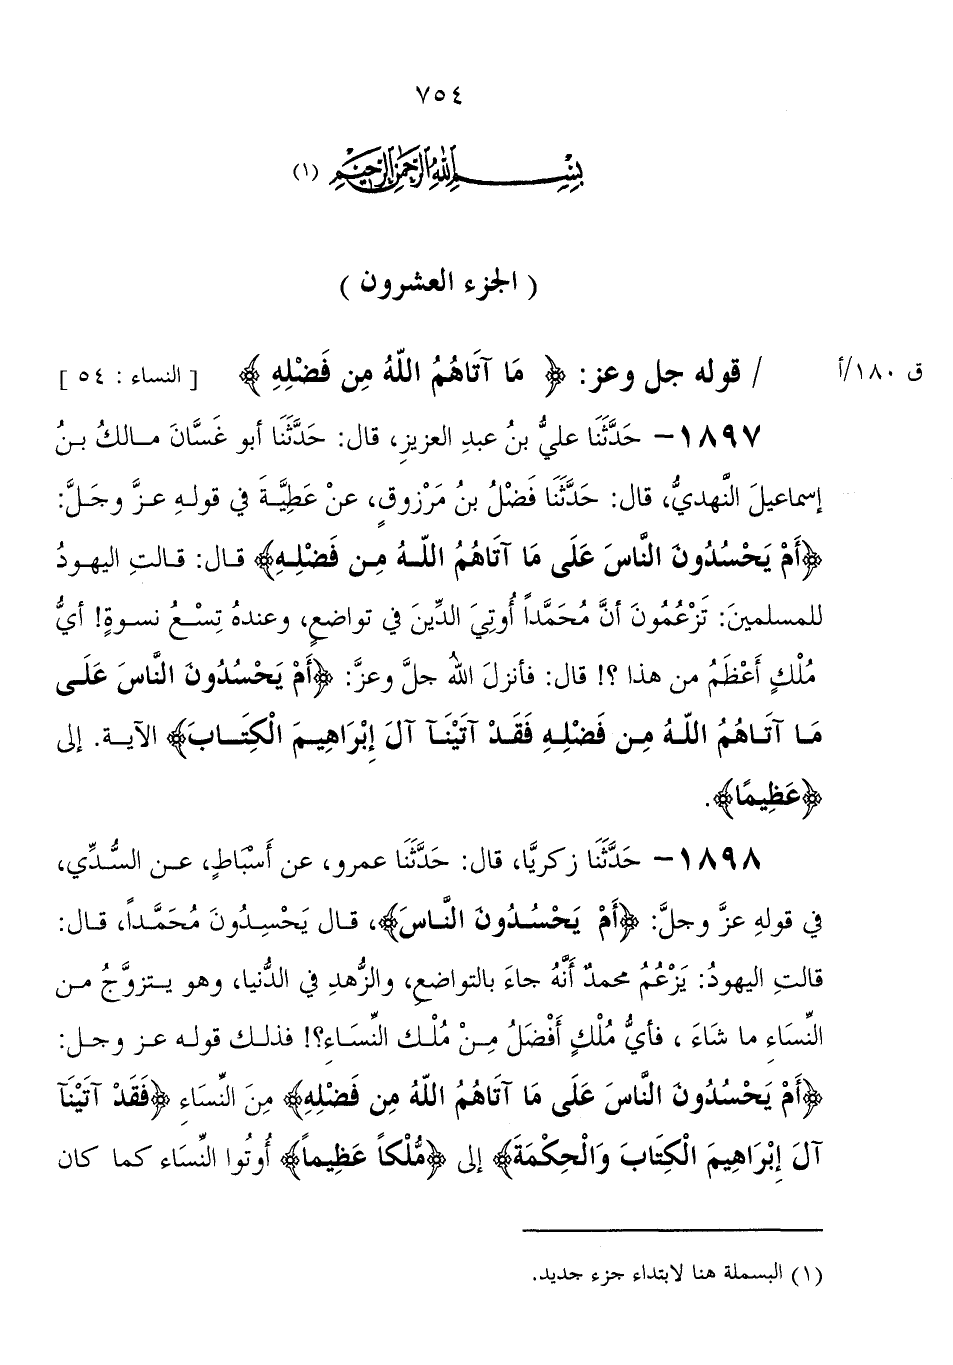 ٧٥٤
بِسْمِ اللهِ الرَّحْمٰنِ الرَّحِيْمِ (١)
( الجزء العشرون )
ق ١٨٠/أ / قوله جل وعز: ﴿ مَا آتَاهُمُ اللَّهُ مِن فَضْلِهِ ﴾ [ النساء : ٥٤ ]
١٨٩٧- حَدَّثَنَا عليُّ بنُ عبدِ العزيزِ، قال: حَدَّثَنَا أبو غَسَّانَ مالكُ بنُ
إسماعيلَ النَّهديُّ، قال: حَدَّثَنَا فَضْلُ بنُ مَرْزوقٍ، عنْ عَطِيَّةَ في قولهِ عزَّ وجَلَّ:
﴿أَمْ يَحْسُدُونَ النَّاسَ عَلَى مَا آتَاهُمُ اللَّهُ مِن فَضْلِهِ﴾ قال: قالتِ اليهودُ
للمسلمينَ: تَزْعُمُونَ أنَّ مُحَمَّداً أُوتِيَ الدِّينَ في تواضعٍ، وعندهُ تِسْعُ نسوةٍ! أيُّ
مُلْكٍ أَعْظَمُ من هذا ؟! قال: فأنزلَ اللهُ جلَّ وعزَّ: ﴿أَمْ يَحْسُدُونَ النَّاسَ عَلَى
مَا آتَاهُمُ اللَّهُ مِن فَضْلِهِ فَقَدْ آتَيْنَآ آلَ إِبْرَاهِيمَ الْكِتَابَ﴾ الآية. إلى
﴿عَظِيمًا﴾.
١٨٩٨- حَدَّثَنَا زكريَّا، قال: حَدَّثَنَا عمرو، عن أَسْبَاطٍ، عن السُّدِّي،
في قولهِ عزَّ وجلَّ: ﴿أَمْ يَحْسُدُونَ النَّاسَ﴾، قال يَحْسِدُونَ مُحَمَّداً، قال:
قالتِ اليهودُ: يَزْعُمُ محمدٌ أَنَّهُ جاءَ بالتواضعِ، والزُّهدِ في الدُّنيا، وهو يتزوَّجُ من
النِّسَاءِ ما شَاءَ ، فأيُّ مُلْكٍ أَفْضَلُ مِنْ مُلْك النِّسَاءِ؟! فذلك قوله عز وجل:
﴿أَمْ يَحْسُدُونَ النَّاسَ عَلَى مَا آتَاهُمُ اللَّهُ مِن فَضْلِهِ﴾ مِنَ النِّسَاءِ ﴿فَقَدْ آتَيْنَآ
آلَ إِبْرَاهِيمَ الْكِتَابَ وَالْحِكْمَةَ﴾ إلى ﴿مُّلْكاً عَظِيماً﴾ أُوتُوا النِّسَاءَ كما كان
(١) البسملة هنا لابتداء جزء جديد.